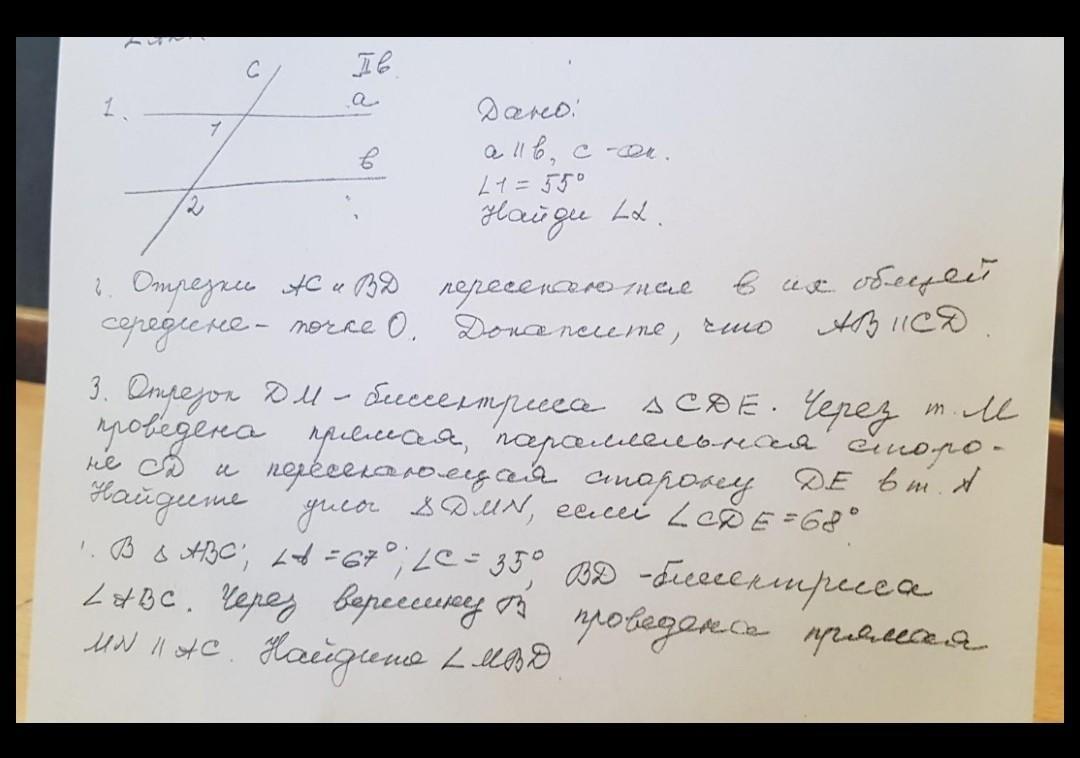 c IIв.
1. a
1
в
2
Дано:
a || в, c - сек.
∠1 = 55°
Найди ∠2.
2. Отрезки AC и BD пересекаются в их общей
середине - точке O. Докажите, что AB || CD.
3. Отрезок DM - биссектриса △ CDE. Через т. M
проведена прямая, параллельная сторо-
не CD и пересекающая сторону DE в т. N
Найдите углы △DMN, если ∠CDE = 68°
В △ ABC, ∠A = 67°, ∠C = 35°, BD - биссектриса
∠ABC. Через вершину B проведена прямая
MN || AC. Найдите ∠MBD